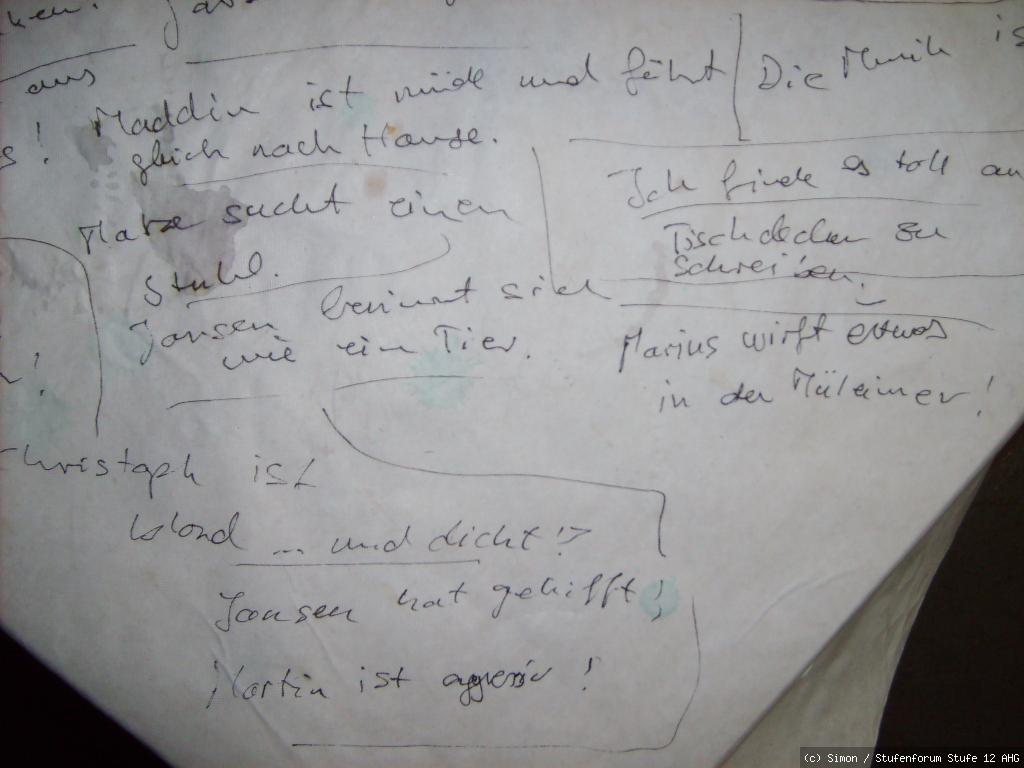 aus
Maddin ist müde und fährt
gleich nach Hause.
Die Musik is
s!
Ich finde es toll au
Tischdecken zu
schreiben!
Matze sucht einen
Stuhl.
Jansen benimmt sich
wie ein Tier.
Marius wirft etwas
in den Mülleimer!
!
Christoph ist
blond ... und dicht!?
Jansen hat gekifft!
Martin ist aggressiv!
(c) Simon / Stufenforum Stufe 12 AHG